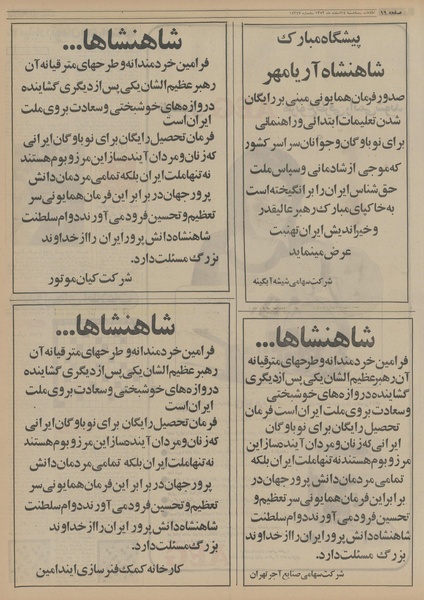 صفحه ۱۹
پیشگاه مبارک
شاهنشاه آریامهر
صدور فرمان همایونی مبنی بر رایگان
شدن تعلیمات ابتدائی و راهنمائی
برای نوباوگان و جوانان سراسر کشور
که موجی از شادمانی و سپاس ملت
حق شناس ایران را برانگیخته است
به خاکپای مبارک رهبر عالیقدر
و خیراندیش ایران تهنیت
عرض مینماید
شرکت سهامی شیشه آبگینه
شاهنشاها...
فرامین خردمندانه و طرحهای مترقیانه آن
رهبر عظیم الشان یکی پس از دیگری گشاینده
دروازه های خوشبختی و سعادت بروی ملت
ایران است
فرمان تحصیل رایگان برای نوباوگان ایرانی
که زنان و مردان آینده ساز این مرز و بوم هستند
نه تنها ملت ایران بلکه تمامی مردمان دانش
پرور جهان در برابر این فرمان همایونی سر
تعظیم و تحسین فرود می آورند دوام سلطنت
شاهنشاه دانش پرور ایران را از خداوند
بزرگ مسئلت دارد.
شرکت کیان موتور
شاهنشاها...
فرامین خردمندانه و طرحهای مترقیانه
آن رهبر عظیم الشان یکی پس از دیگری
گشاینده دروازه های خوشبختی و
سعادت بروی ملت ایران است فرمان
تحصیل رایگان برای نوباوگان
ایرانی که زنان و مردان آینده ساز این
مرز و بوم هستند نه تنها ملت ایران بلکه
تمامی مردمان دانش پرور جهان در
برابر این فرمان همایونی سر تعظیم و
تحسین فرود می آورند دوام سلطنت
شاهنشاه دانش پرور ایران را از خداوند
بزرگ مسئلت دارد.
شرکت سهامی صنایع آجر تهران
شاهنشاها...
فرامین خردمندانه و طرحهای مترقیانه آن
رهبر عظیم الشان یکی پس از دیگری گشاینده
دروازه های خوشبختی و سعادت بروی ملت
ایران است
فرمان تحصیل رایگان برای نوباوگان ایران
که زنان و مردان آینده ساز این مرز و بوم هستند
نه تنها ملت ایران بلکه تمامی مردمان دانش
پرور جهان در برابر این فرمان همایونی سر
تعظیم و تحسین فرود می آورند دوام سلطنت
شاهنشاه دانش پرور ایران را از خداوند
بزرگ مسئلت دارد.
کارخانه کمک فنرسازی ایندامین